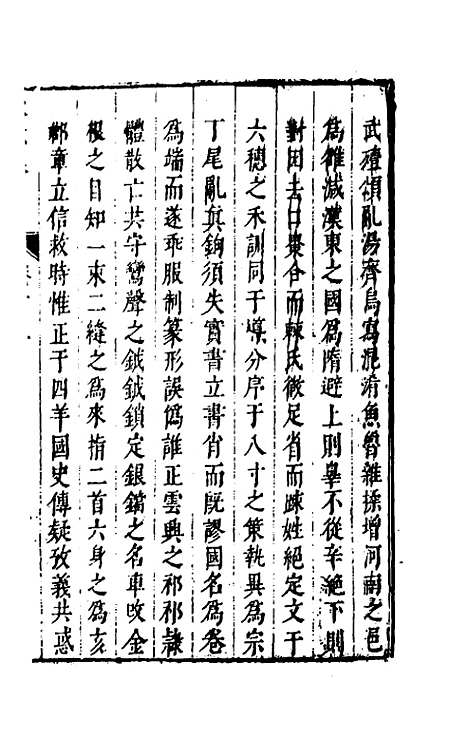 武禮頌亂湯齊烏寫混淆魚魯雜揉增河南之邑
爲雒減漢東之國爲隋避上則辠不從辛絕下則
對因去口棗合而棘氏微足省而踈姓絕定文于
六穗之禾訓同于導分序于八寸之策執異爲宗
丁尾亂眞鉤須失實書立書肖而旣謬國名爲卷
爲端而遂乖服制篆形誤僞誰正雲興之祁祁隷
體散亡共守鸞聲之鉞鉞鎖定銀鐺之名車改金
根之目知一束二縫之爲來指二首六身之爲亥
鄣章立信救時惟正于四羊國史傳疑攷義共惑